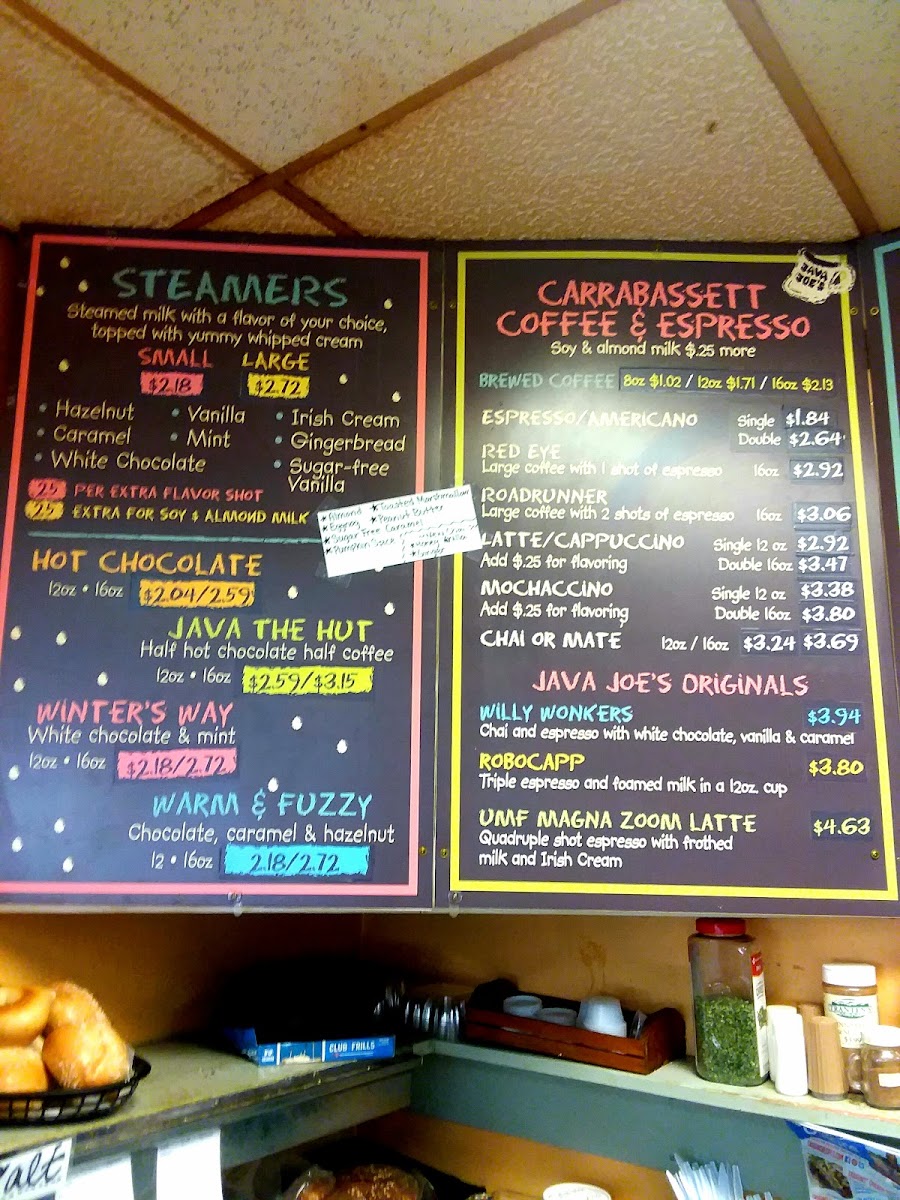 STEAMERS
Steamed milk with a flavor of your choice,
topped with yummy whipped cream
SMALL LARGE
$2.18 $2.72
• Hazelnut • Vanilla • Irish Cream
• Caramel • Mint • Gingerbread
• White Chocolate • Sugar-free
Vanilla
.25 PER EXTRA FLAVOR SHOT
.25 EXTRA FOR SOY & ALMOND MILK
★ Almond ★ Toasted Marshmallow
★ Eggnog ★ Peanut Butter
★ Sugar Free Caramel
★ Pumpkin Spice
HOT CHOCOLATE
12oz • 16oz $2.04/2.59
JAVA THE HUT
Half hot chocolate half coffee
12oz • 16oz $2.59/$3.15
WINTER'S WAY
White chocolate & mint
12oz • 16oz $2.18/2.72
WARM & FUZZY
Chocolate, caramel & hazelnut
12 • 16oz 2.18/2.72
JAVA
JOE'S
CARRABASSETT
COFFEE & ESPRESSO
Soy & almond milk $.25 more
BREWED COFFEE 8oz $1.02 / 12oz $1.71 / 16oz $2.13
ESPRESSO/AMERICANO Single $1.84
Double $2.64
RED EYE
Large coffee with 1 shot of espresso 16oz $2.92
ROADRUNNER
Large coffee with 2 shots of espresso 16oz $3.06
LATTE/CAPPUCCINO Single 12 oz $2.92
Add $.25 for flavoring Double 16oz $3.47
MOCHACCINO Single 12 oz $3.38
Add $.25 for flavoring Double 16oz $3.80
CHAI OR MATE 12oz / 16oz $3.24 $3.69
JAVA JOE'S ORIGINALS
WILLY WONKERS $3.94
Chai and espresso with white chocolate, vanilla & caramel
ROBOCAPP $3.80
Triple espresso and foamed milk in a 12oz. cup
UMF MAGNA ZOOM LATTE $4.63
Quadruple shot espresso with frothed
milk and Irish Cream
CLUB FRILLS
alt